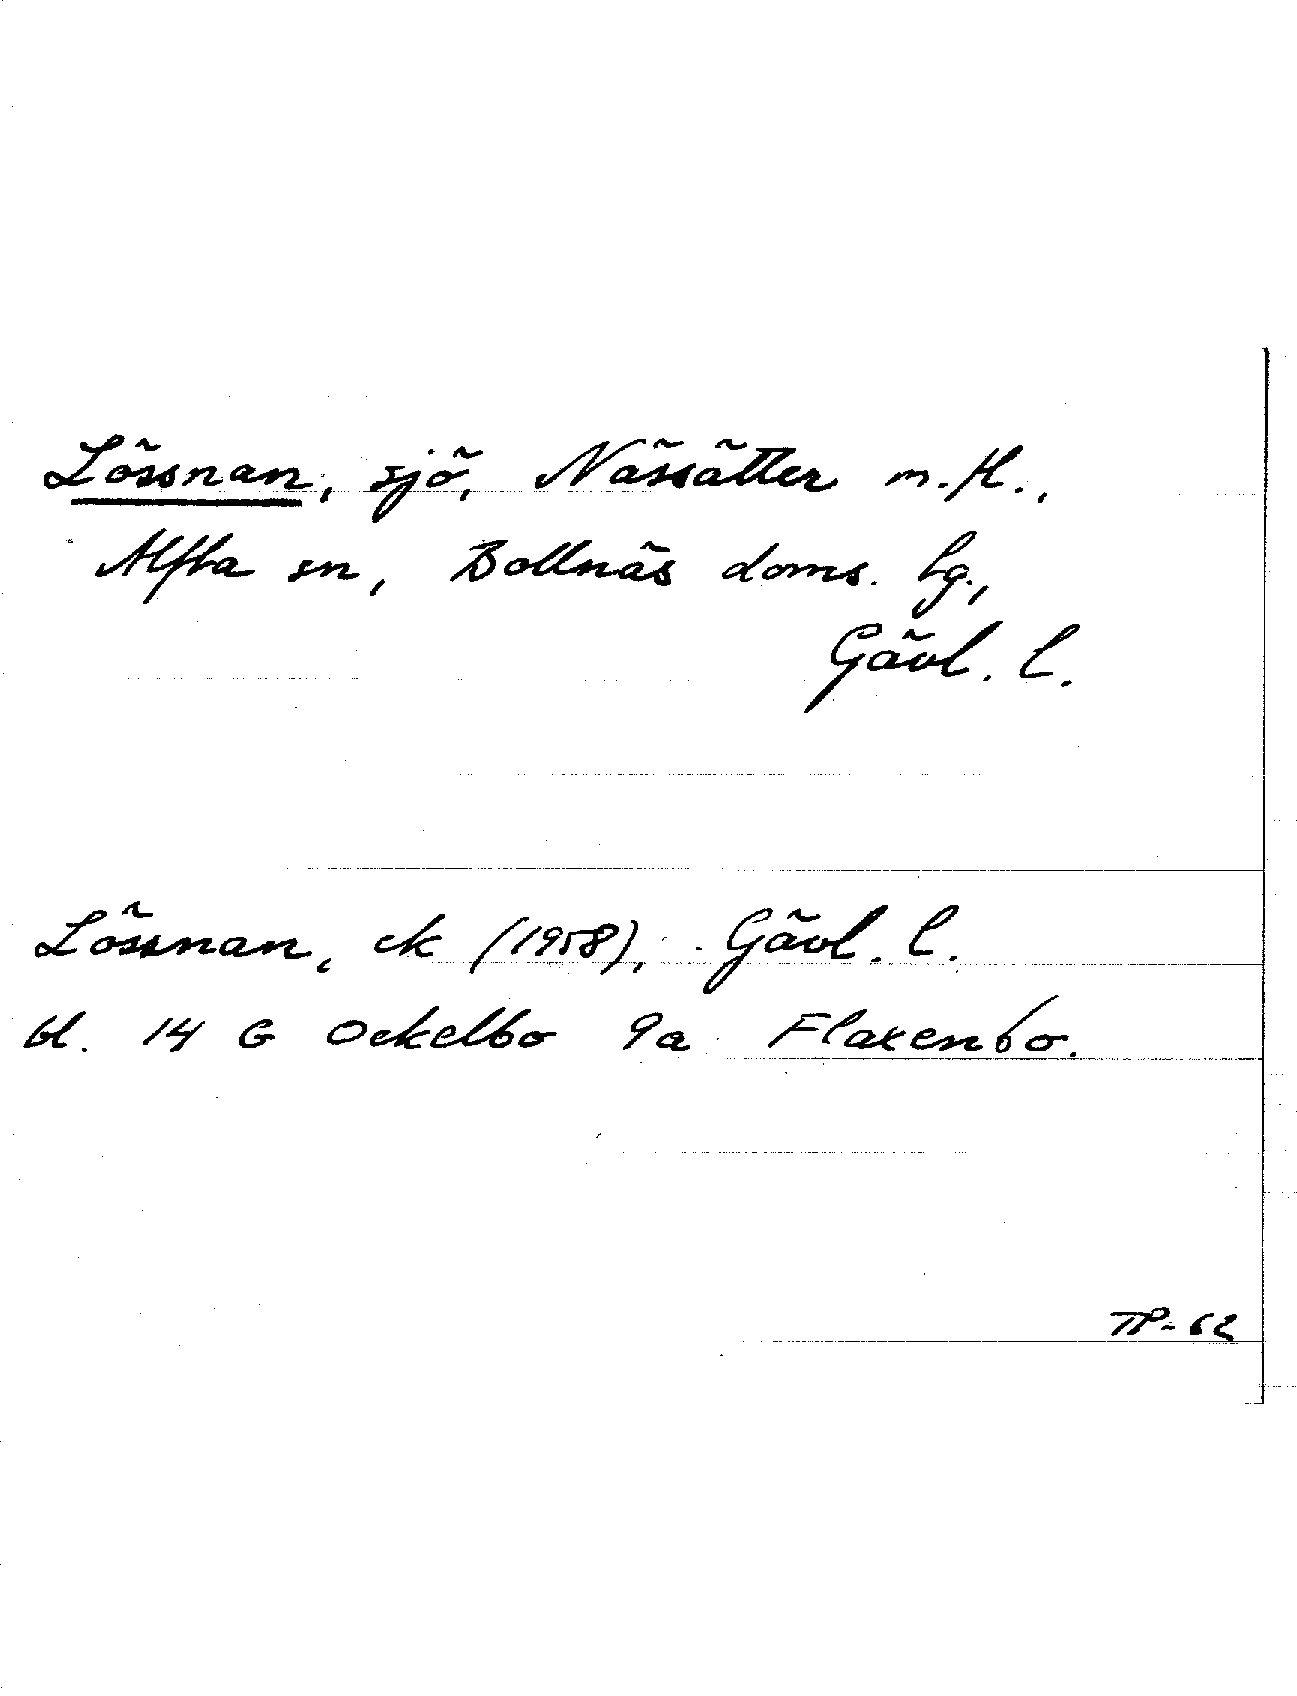 Lössnan, sjö, Nässätter m.fl.,
Alfta sn, Bollnäs doms. lg.,
Gävl. l.
Lössnan, ek (1958), Gävl. l.
bl. 14 G Ockelbo 9a Flaxenbo.
TP-62